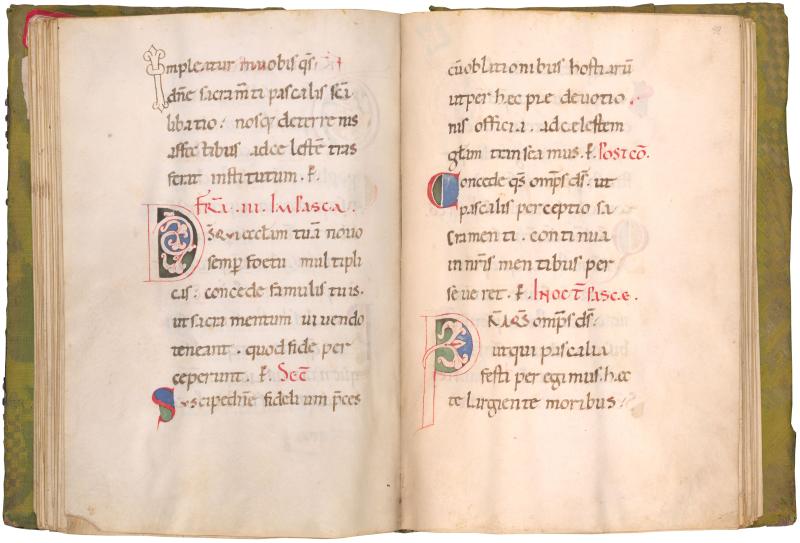 Impleatur in nobis q̅s
dn̅e sacram̅ti pascalis sc̅a
libatio: nosq; deterrenis
affectibus ad celeste̅ tras
ferat institutum. P̅.
FR̅A .III. IN PASCA.
D̅S QVI eccl̅am tua̅ nouo
semp̅ foetu multipli
cas: concede famulis tuis.
ut sacramentum uiuendo
teneant. quod fide per
ceperunt. P̅ SEC̅
Suscipe dn̅e fidelium p̅ces
cu̅ oblationibus hostiaru̅
ut per hec pie deuotio
nis officia. ad celestem
gl̅am transeamus. P̅. POST CO̅.
Concede q̅s omp̅s d̅s. ut
pascalis perceptio sa
cramenti. continua
in nr̅is mentibus per
seueret. P̅. IN OCT̅ PASCE.
PR̅A Q̅S omp̅s d̅s.
ut qui pascalia
festa peregimus. hec
te largiente moribus: